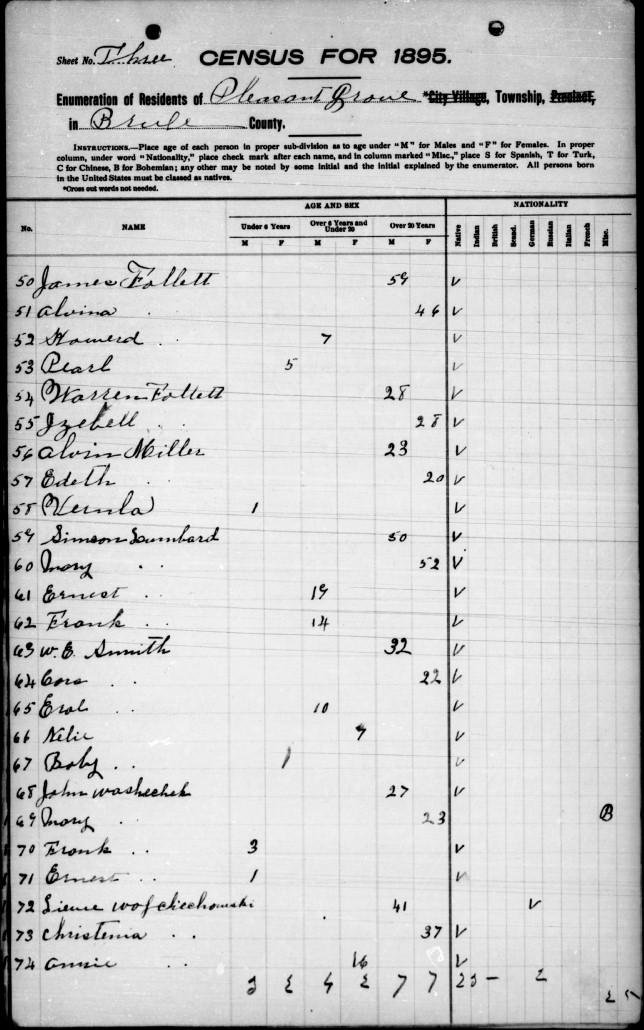 Sheet No. Three CENSUS FOR 1895.
Enumeration of Residents of Pleasant Grove *City Village, Township, Precinct,
in Brule County.
INSTRUCTIONS.—Place age of each person in proper sub-division as to age under "M" for Males and "F" for Females. In proper
column, under word "Nationality," place check mark after each name, and in column marked "Misc.," place S for Spanish, T for Turk,
C for Chinese, B for Bohemian; any other may be noted by some initial and the initial explained by the enumerator. All persons born
in the United States must be classed as natives.
*Cross out words not needed.
AGE AND SEX NATIONALITY
No. NAME Under 6 Years Over 6 Years and Under 20 Over 20 Years Native Indian British Scand. German Russian Italian French Misc.
M F M F M F
50 James Follett 59 V
51 Alvina 46 V
52 Howerd 7 V
53 Pearl 5 V
54 Warren Follett 28 V
55 Izebell 28 V
56 Alvin Miller 23 V
57 Edeth 20 V
58 Vernla 1 V
59 Simeon Lumbard 50 V
60 Mary 52 V
61 Ernest 19 V
62 Frank 14 V
63 W. E. Smith 32 V
64 Cora 22 V
65 Erol 10 V
66 Nelie V
67 Baby 1 V
68 John Washechek 27 V
69 Mary 23 B
70 Frank 3 V
71 Ernest 1 V
72 41 V
73 Christenia 37 V
74 Annie 16 V
3 2 4 2 7 7 23 –